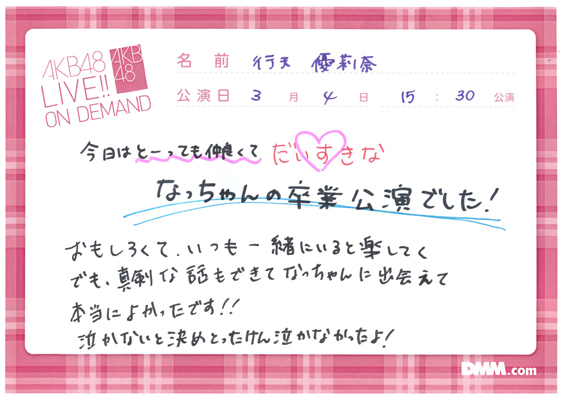 AKB48
LIVE!!
ON DEMAND
AKB
48
名前 行天 優莉奈
公演日 3月4日 15:30公演
今日はとーっても仲良くて だいすきな
なっちゃんの卒業公演でした!
おもしろくて、いつも一緒にいると楽しくて
でも、真剣な話もできてなっちゃんに出会えて
本当によかったです!!
泣かないと決めとったけん泣かなかったよ!
DMM.com